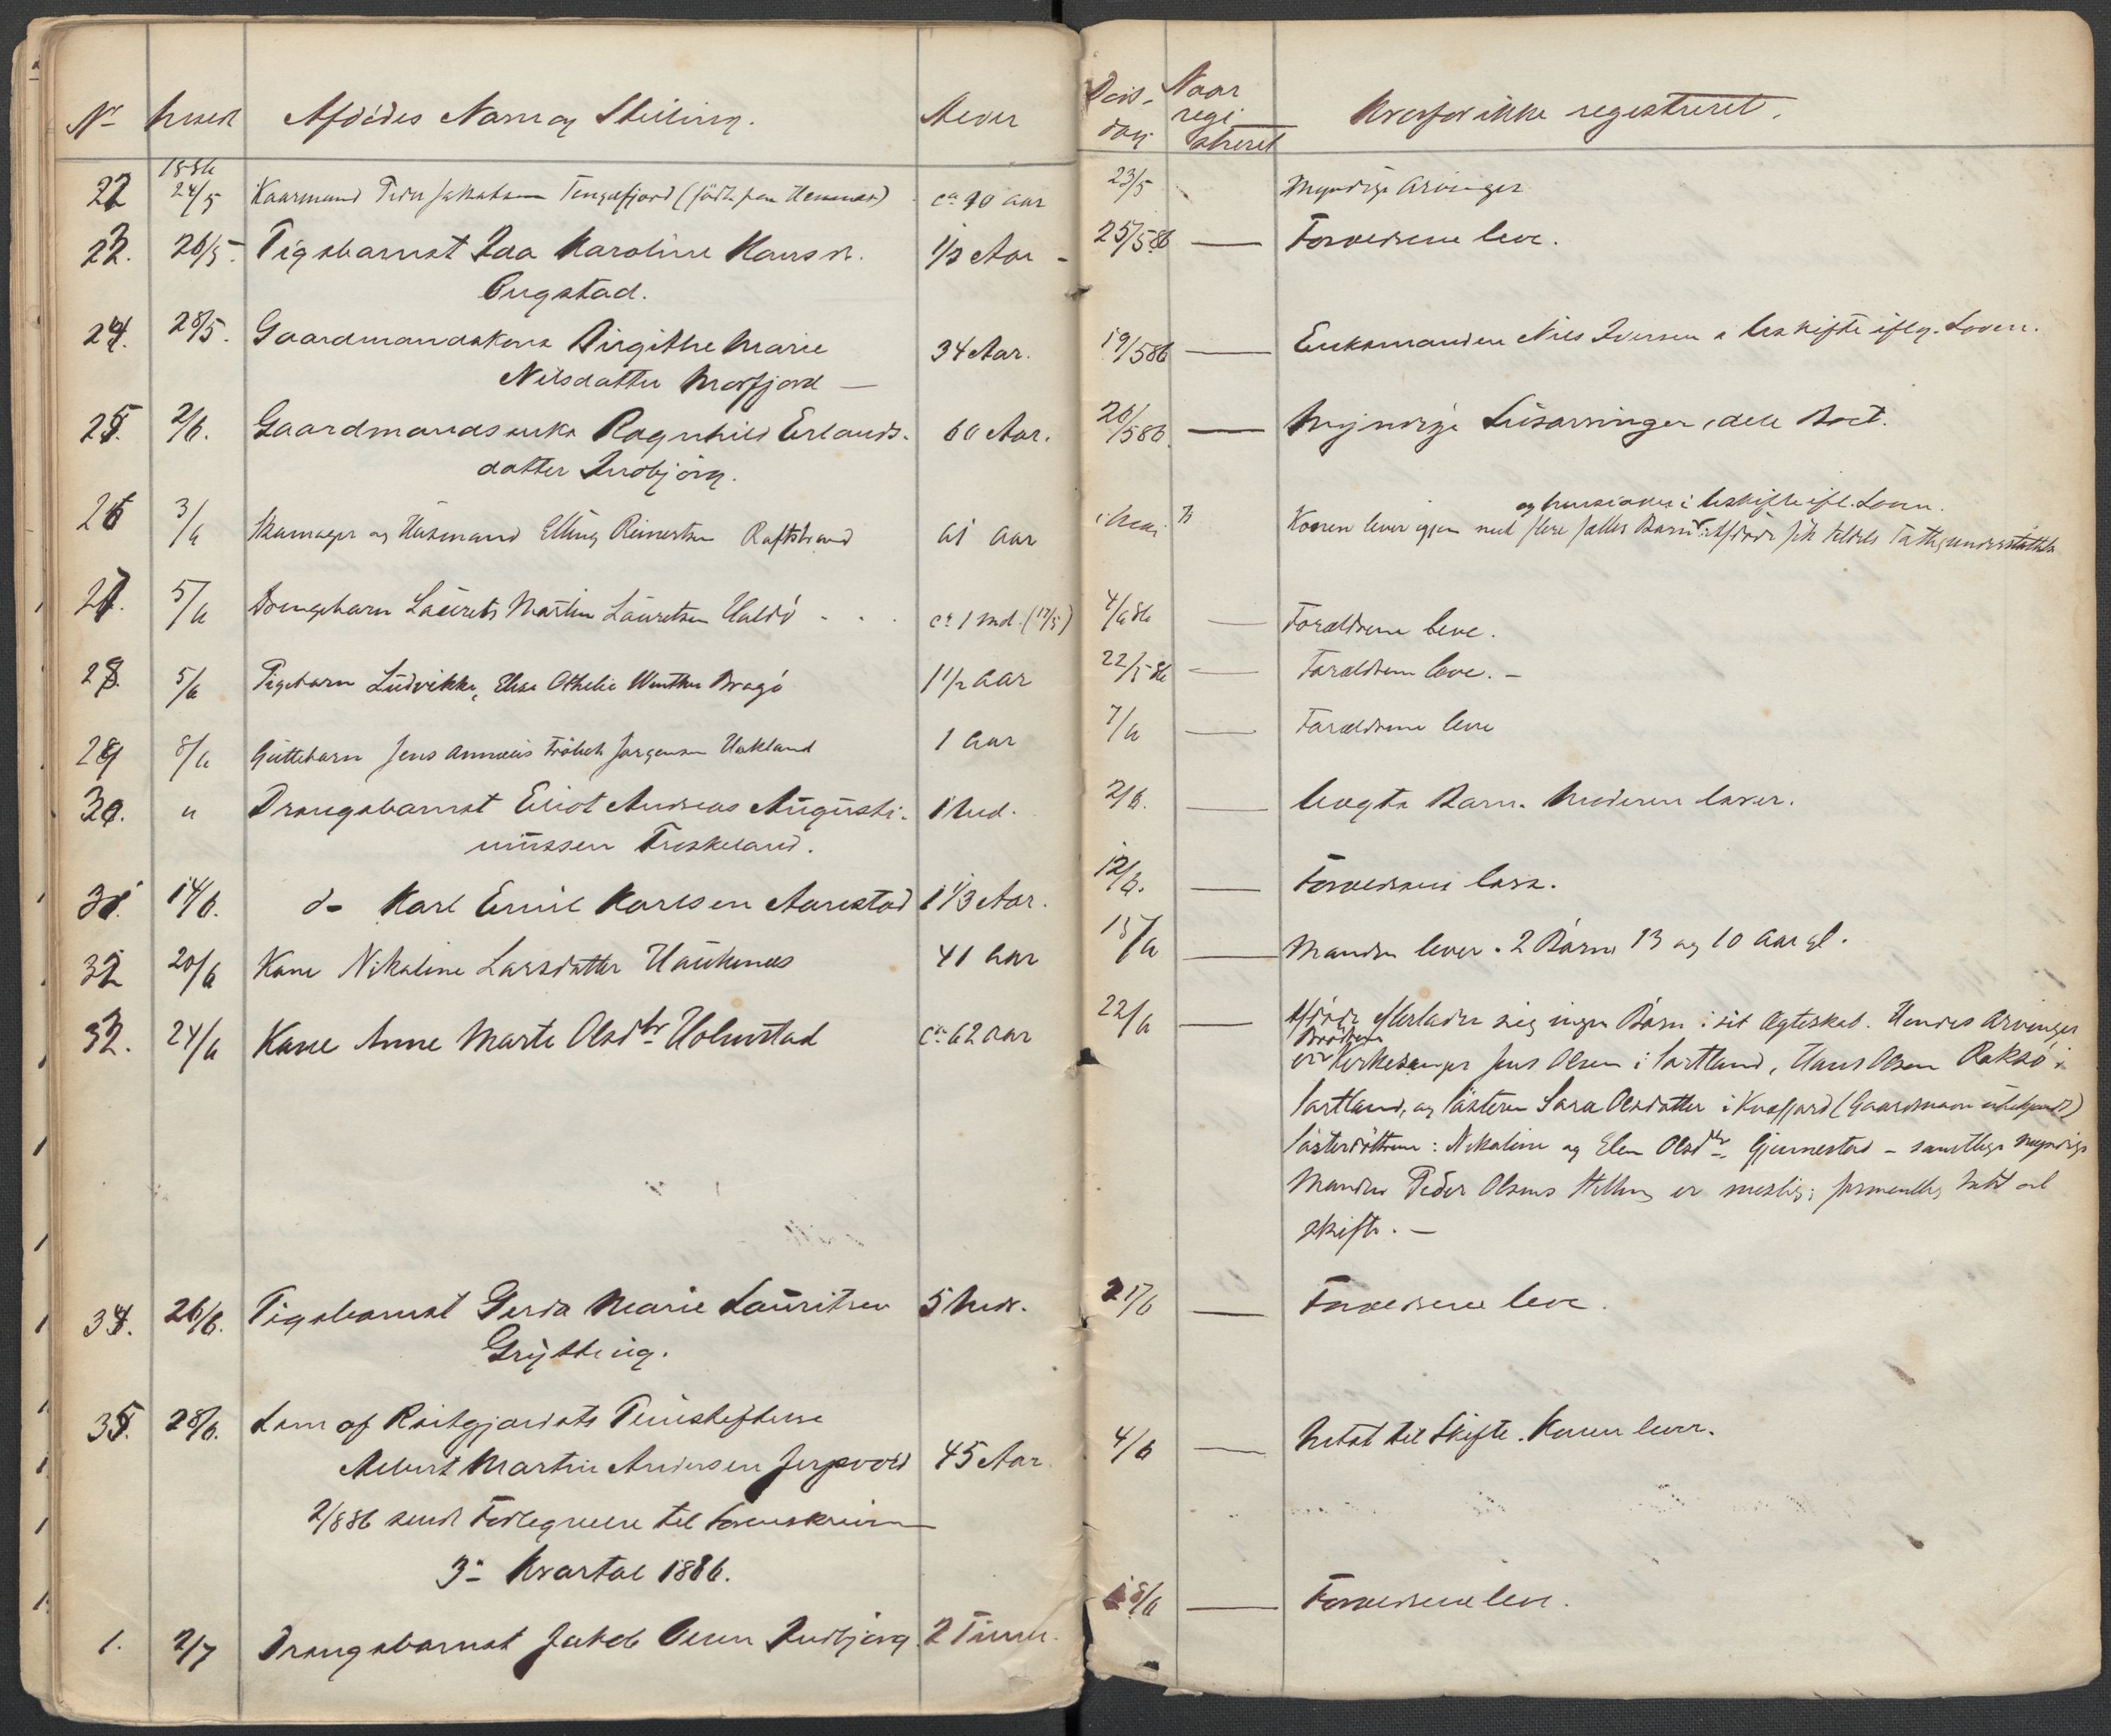 Nr Anmeldt Afdødes Navn og Stilling. Alder Døds- Naar
dag regi
streret Hvorfor ikke registreret.
1886
22 24/5 Kaarmand Peder Jakobsen Tengelfjord (født paa Hemnes) ca 90 aar 23/5 Myndige Arvinger
23. 26/5. Pigebarnet Ida Karoline Hansd. 1/2 Aar - 25/5 86 — Forældrene leve.
Bugstad.
24. 28/5. Gaardmandskone Birgithe Marie 34 Aar. 19/5 86 — Enkemanden Nils Iversen i Uskifte iflg. Loven.
Nilsdatter Morfjord —
25. 2/6. Gaardmandsenke Ragnhild Erlands- 60 Aar. 26/5 86. — Myndige Livsarvinger, dele Boet.
datter Indbjörg.
og hensidder i Uskifte ifl. Loven.
26 3/6 Skomager og Husmand Elling Reinertsen Raftstrand 61 aar i Mai Konen lever igjen med flere fælles Børn. Afdøde fik tildels Fattigunderstøttelse
27. 5/6 Drengebarn Laurets Martin Lauretsen Haldö . . . ca 1 Md. (17/5) 4/6 86 — Forældrene leve.
28. 5/6 Pigebarn Ludvikke, Elise Othelie Winther Bragö 1 1/2 aar 22/5 86 — Forældrene leve. -
29 8/6 Guttebarn Jens Annæus Frölich Jørgensen Hakland 1 aar 7/6 — Forældrene leve
30. " Drengebarnet Eliot Andreas Augusti- 1 Md. 2/6. — Uægte Barn. Moderen lever.
nussen Freskeland.
31. 14/6. do Karl Emil Karlsen Aarestad 1 1/3 Aar. 12/6. — Forældrene leve.
32 20/6 Kone Nikoline Larsdatter Haukenes 41 Aar 15/6 — Manden lever. 2 Børn 13 og 10 Aar gl.
33. 24/6 Kone Anne Marte Olsdtr Holmstad ca 62 aar 22/6 — Afdøde efterlader sig ingen Börn i sit Ægteskab. Hendes Arvinger
Brødrene
er Kirkesanger Jens Olsen i Sortland, Hans Olsen Roksö i
Sortland, og Søsteren Sara Olsdatter i Kvæfjord (Gaardsnavn ubekjendt)
Søsterdøttrene: Nikoline og Elen Olsdtr Gjernestad - samtlige myndige
Manden Peder Olsens Stilling er mislig; formentlig Intet at
skifte. —
34. 26/6. Pigebarnet Gerda Marie Lauritsen 5 Mdr. 21/6 — Forældrene leve.
Grytting.
35. 28/6. Lem af Raftgjordets
Albert Martin Andersen Jerpvold 45 Aar. 4/6 — Intet til Skifte. Konen lever.
2/8 86 sendt Fortegnelse til Sorenskriveren
3de Kvartal 1886.
1. 2/7 Drengebarnet Jakob Olsen Indbjörg. 2 Timer. 18/6 — Forældrene leve.